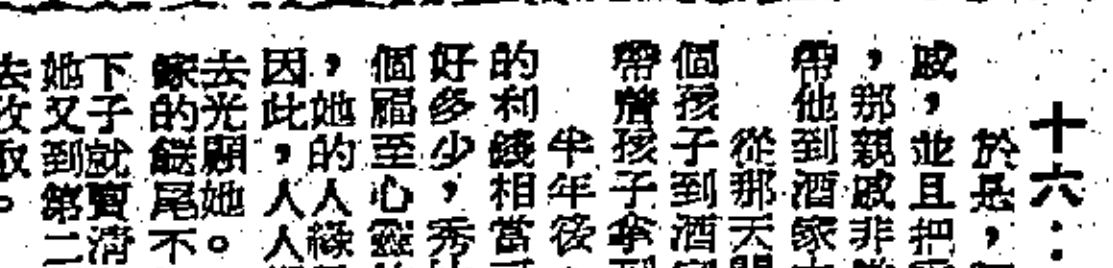 十六：
於是，
戚，並且把
，那親戚非
帶他到酒家
從那天開
個孩子到酒家
帶着孩子拿到
半年後
的利錢相當可
好多少，秀
個福至心靈
，她的人緣
因此，人人
去光顧她。
嫁的餸尾不
下子就賣清
她又到第二
去收取。